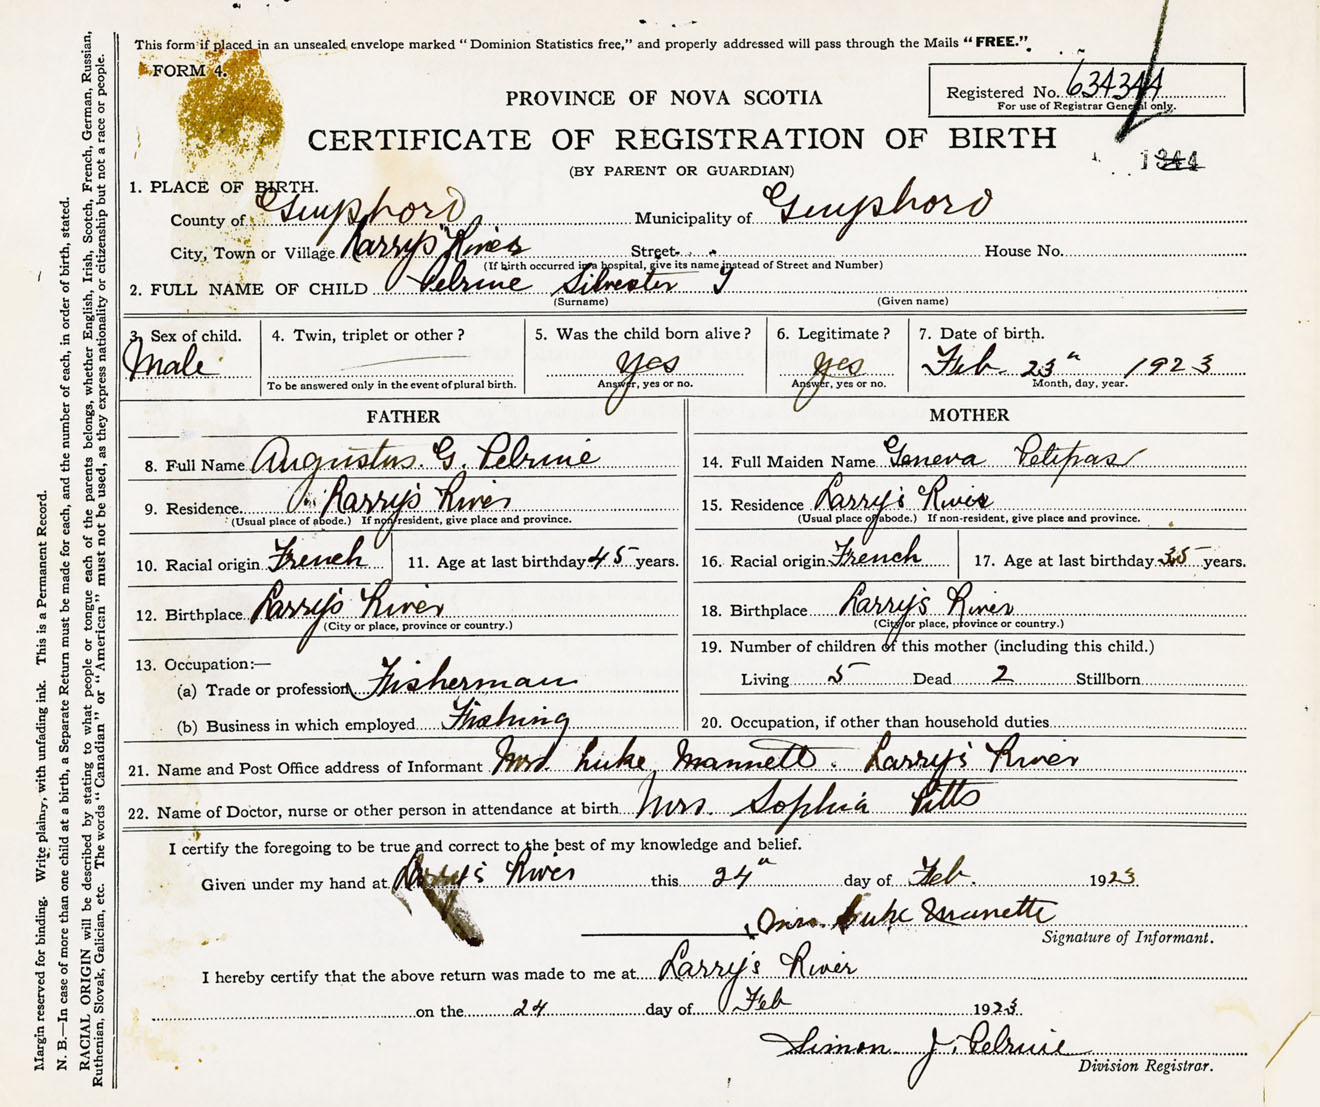 This form if placed in an unsealed envelope marked "Dominion Statistics free," and properly addressed will pass through the Mails "FREE."
FORM 4.
Registered No. 634344
For use of Registrar General only.
PROVINCE OF NOVA SCOTIA
CERTIFICATE OF REGISTRATION OF BIRTH
(BY PARENT OR GUARDIAN)
1. PLACE OF BIRTH.
County of Guysboro Municipality of Guysboro
City, Town or Village Larry's River Street House No.
(If birth occurred in a hospital, give its name instead of Street and Number)
2. FULL NAME OF CHILD Pelrine Silvester J
(Surname) (Given name)
3. Sex of child. Male
4. Twin, triplet or other?
To be answered only in the event of plural birth.
5. Was the child born alive? Yes
Answer, yes or no.
6. Legitimate? Yes
Answer, yes or no.
7. Date of birth.
Feb 23" 1923
Month, day, year.
FATHER
8. Full Name Augustus. G. Pelrine
9. Residence. Larry's River
(Usual place of abode.) If non-resident, give place and province.
10. Racial origin French 11. Age at last birthday 45 years.
12. Birthplace Larry's River
(City or place, province or country.)
13. Occupation:—
(a) Trade or profession Fisherman
(b) Business in which employed Fishing
MOTHER
14. Full Maiden Name Geneva Petipas
15. Residence Larry's River
(Usual place of abode.) If non-resident, give place and province.
16. Racial origin French 17. Age at last birthday 35 years.
18. Birthplace Larry's River
(City or place, province or country.)
19. Number of children of this mother (including this child.)
Living 5 Dead 2 Stillborn
20. Occupation, if other than household duties
21. Name and Post Office address of Informant Mrs. Luke Mannett. Larry's River
22. Name of Doctor, nurse or other person in attendance at birth Mrs. Sophia Pitts
I certify the foregoing to be true and correct to the best of my knowledge and belief.
Given under my hand at Larry's River this 24" day of Feb. 1923
Mrs. Luke Manette
Signature of Informant.
I hereby certify that the above return was made to me at Larry's River
on the 24 day of Feb 1923
Simon J. Pelrine
Division Registrar.
Margin reserved for binding. Write plainly, with unfading ink. This is a Permanent Record.
N. B.—In case of more than one child at a birth, a Separate Return must be made for each, and the number of each, in order of birth, stated.
RACIAL ORIGIN will be described by stating to what people or tongue each of the parents belongs, whether English, Irish, Scotch, French, German, Russian,
Ruthenian, Slovak, Galician, etc. The words "Canadian" or "American" must not be used, as they express nationality or citizenship but not a race or people.